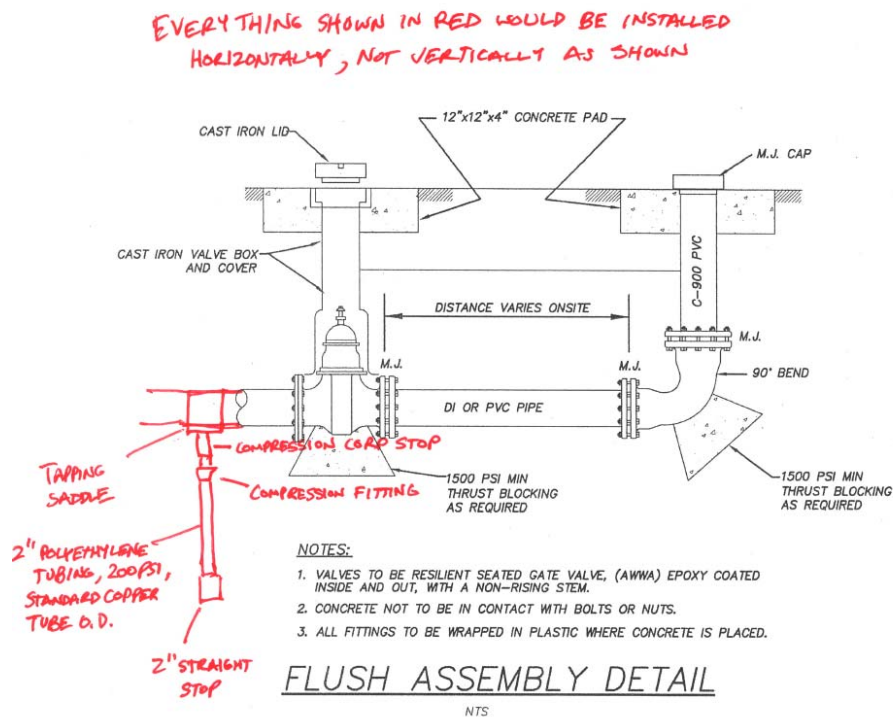 EVERYTHING SHOWN IN RED WOULD BE INSTALLED
HORIZONTALLY, NOT VERTICALLY AS SHOWN
12"x12"x4" CONCRETE PAD
CAST IRON LID
M.J. CAP
CAST IRON VALVE BOX
AND COVER
C-900 PVC
DISTANCE VARIES ONSITE
M.J.
M.J.
M.J.
90° BEND
DI OR PVC PIPE
COMPRESSION CORP STOP
TAPPING
SADDLE
COMPRESSION FITTING
1500 PSI MIN
THRUST BLOCKING
AS REQUIRED
1500 PSI MIN
THRUST BLOCKING
AS REQUIRED
2" POLYETHYLENE
TUBING, 200 PSI,
STANDARD COPPER
TUBE O.D.
2" STRAIGHT
STOP
NOTES:
1. VALVES TO BE RESILIENT SEATED GATE VALVE, (AWWA) EPOXY COATED
INSIDE AND OUT, WITH A NON-RISING STEM.
2. CONCRETE NOT TO BE IN CONTACT WITH BOLTS OR NUTS.
3. ALL FITTINGS TO BE WRAPPED IN PLASTIC WHERE CONCRETE IS PLACED.
FLUSH ASSEMBLY DETAIL
NTS